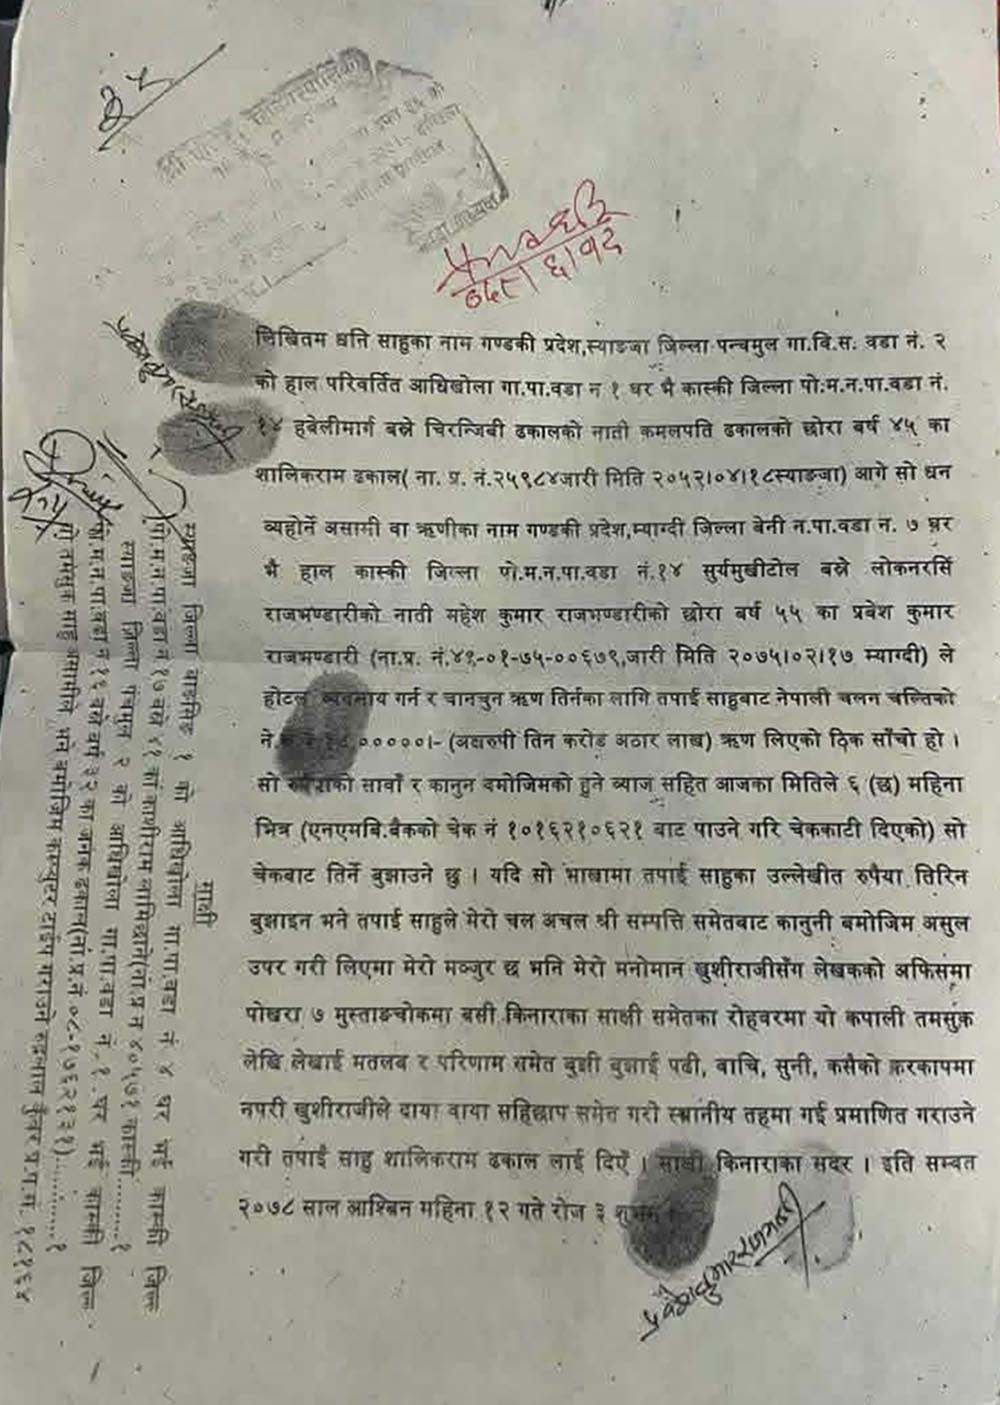 लिखितम धनि साहुका नाम गण्डकी प्रदेश,स्याङजा जिल्ला पन्चमुल गा.बि.स. वडा नं. २
को हाल परिवर्तित आधिखोला गा.पा.वडा न १ घर भै कास्की जिल्ला पो.म.न.पा.वडा नं.
१४ हबेलीमार्ग बस्ने चिरन्जिबी ढकालको नाती कमलपति ढकालको छोरा बर्ष ४५ का
शालिकराम ढकाल( ना. प्र. नं.२५९८४जारी मिति २०५२।०४।१८स्याङजा) आगे सो धन
व्यहोर्ने असामी वा ऋणीका नाम गण्डकी प्रदेश,म्याग्दी जिल्ला बेनी न.पा.वडा न. ७ घर
भै हाल कास्की जिल्ला पो.म.न.पा.वडा नं.१४ सुर्यमुखीटोल बस्ने लोकनरसिं
राजभण्डारीको नाती महेश कुमार राजभण्डारीको छोरा बर्ष ५५ का प्रबेश कुमार
राजभण्डारी (ना.प्र. नं.४९-०१-७५-००६७९,जारी मिति २०७५।०२।१७ म्याग्दी) ले
होटल व्यवसाय गर्न र चानचुन ऋण तिर्नका लागि तपाई साहुबाट नेपाली चलन चल्तिको
०००००।- (अक्षरुपी तिन करोड अठार लाख) ऋण लिएको ठिक साँचो हो ।
सो रुपैयाको सावाँ र कानुन वमोजिमको हुने ब्याज सहित आजका मितिले ६ (छ) महिना
भित्र (एनएमबि.बैकको चेक नं १०१६२१०६२१ बाट पाउने गरि चेककाटी दिएको) सो
चेकबाट तिर्ने बुझाउने छु । यदि सो भाखामा तपाई साहुका उल्लेखीत रुपैया तिरिन
बुझाइन भने तपाई साहुले मेरो चल अचल श्री सम्पत्ति समेतबाट कानुनी बमोजिम असुल
उपर गरी लिएमा मेरो मञ्जुर छ भनि मेरो मनोमान खुशीराजीसँग लेखकको अफिसमा
पोखरा ७ मुस्ताङचोकमा बसी किनाराका साक्षी समेतका रोहवरमा यो कपाली तमसुक
लेखि लेखाई मतलब र परिणाम समेत बुझी बुझाई पढी, वाचि, सुनी, कसैको करकापमा
नपरी खुशीराजीले दाया वाया सहिछाप समेत गरी स्थानीय तहमा गई प्रमाणित गराउने
गरी तपाई साहु शालिकराम ढकाल लाई दिएँ । साक्षी किनाराका सदर । इति सम्बत
२०७८ साल आश्बिन महिना १२ गते रोज ३ शुभम्
प्रवेश कुमार राजभण्डारी
साक्षी
स्याङजा जिल्ला वाङसिङ १ को आधिखोला गा.पा.वडा नं ४ घर भई कास्की जिल्ला
पो.म.न.पा.वडा न १७ बस्ने
स्याङजा जिल्ला पंचमुल २ को आधिखोला गा.पा.वडा नं. १ घर भई कास्की जिल्ला
पो.म.न.पा.वडा न